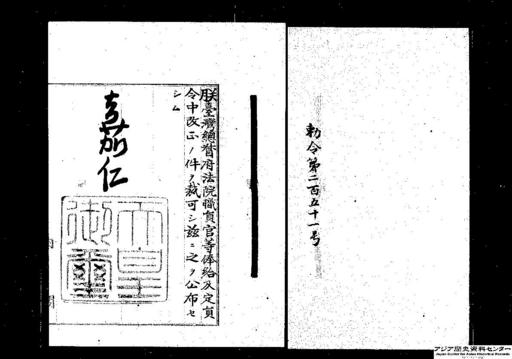 勅令第二百五十一号
朕臺灣總督府法院職員官等俸給及定員
令中改正ノ件ヲ裁可シ茲ニ之ヲ公布セ
シム
嘉仁
天皇
御璽
アジア歴史資料センター
Japan Center for Asian Historical Records